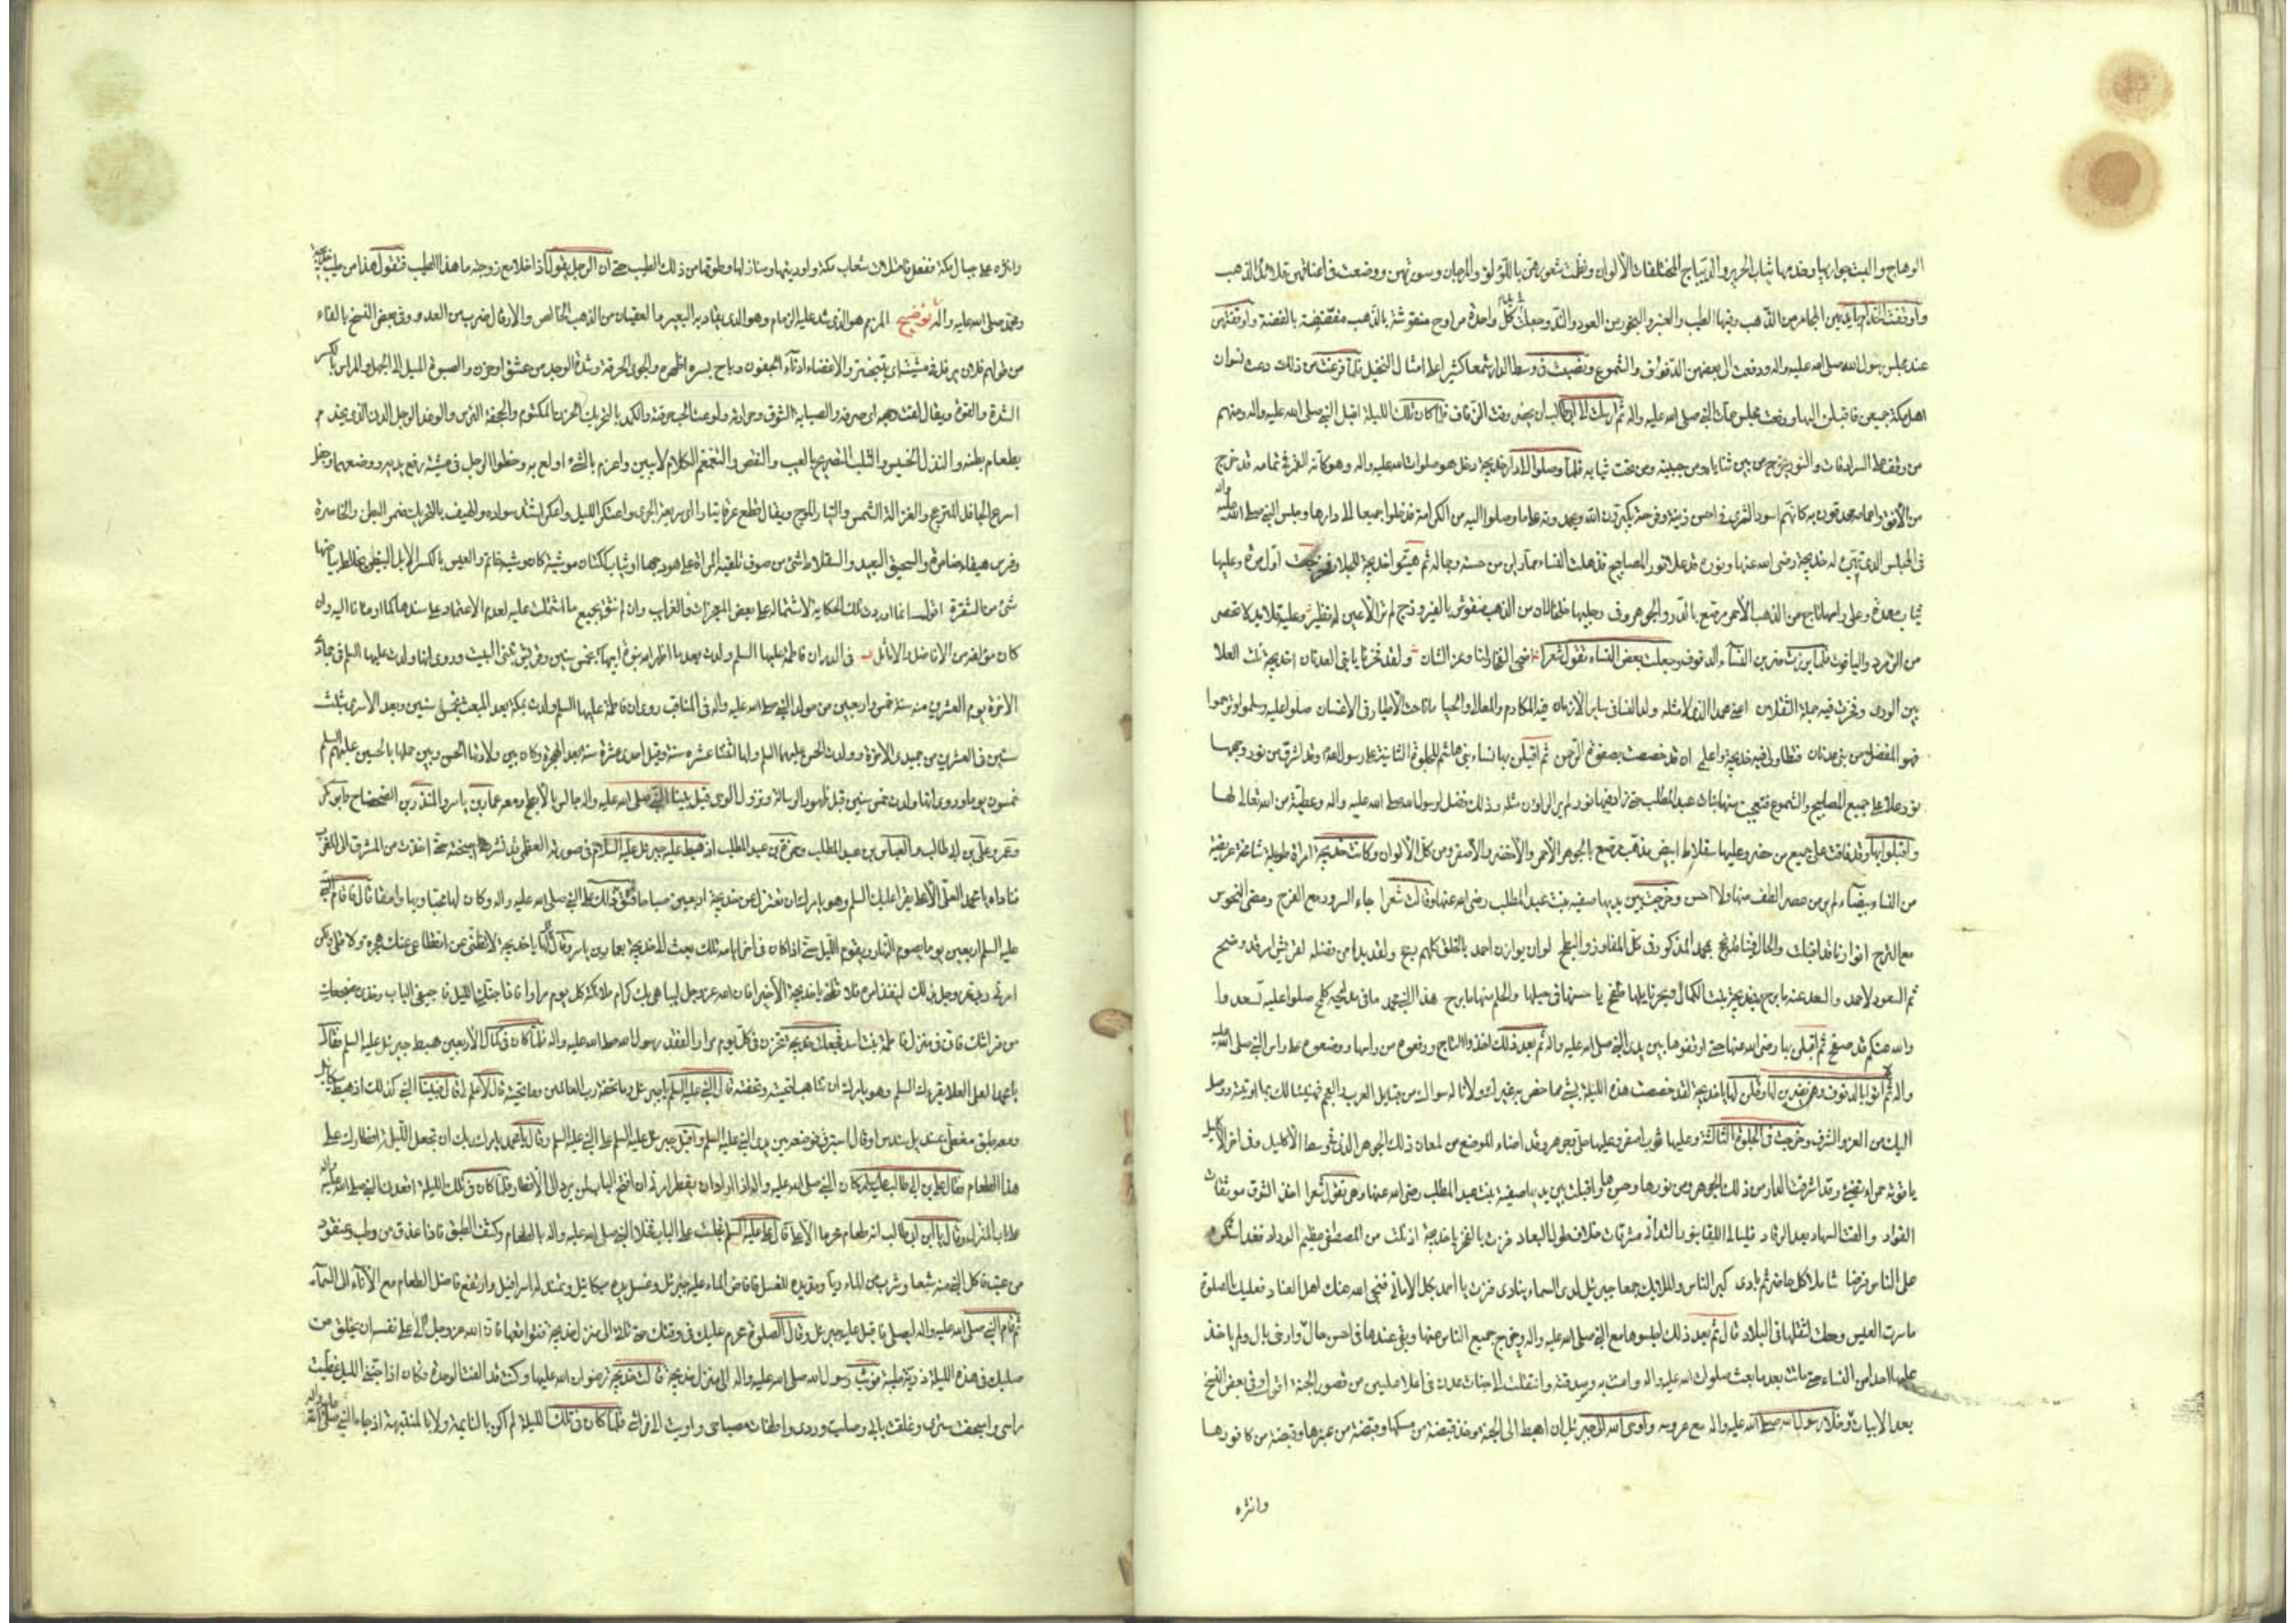 الوهاج والبست جواريها وخدمها ثياب الحرير والديباج المختلفات الألوان ونظمت شعورهن باللؤلؤ والمرجان وسورتهن ووضعت في اعناقهن قلائد الذهب
واوقفت الخدام بايديهن المجامر من الذهب وفيها الطيب والعنبر والبخور من العود والند وجعلت كل واحدة مراوح منقوشة بالذهب مقضضة بالفضة واوقفتهن
عند مجلس رسول الله صلى الله عليه واله ودفعت الى بعضهن الدفوف والشموع ونصبت في وسط الدار شمعا كثيرا على امثال النخيل فلما فرغت من ذلك دعت نسوان
اهل مكة جميعهن فاقبلن اليها ورفعت مجلس عمات النبي صلى الله عليه واله ثم ارسلت الى ابي طالب ان يحضر وقت الزفاف فلما كان تلك الليلة اقبل النبي صلى الله عليه واله وعليهم
والنور يخرج من بين ثناياه ومن جبينه ومن تحت ثيابه فلما وصلوا الى دار خديجة دخل هو صلوات الله عليه واله وهو كانه القمر في تمامه قد خرج
من الافق واعمامه محدقون به كانهم اسود الشرى في احسن زينة وفرحة يكبرون الله ويحمدونه على ما وصلوا اليه من الكرامة فدخلوا جميعا الى دارها وجلس النبي صلى الله عليه واله
في المجلس الذي هيئ له خديجة رضى الله عنها ونوره قد علا نور المصابيح فذهلت النساء مما راين من حسنه وجماله ثم هيئوا خديجة للجلاء فخرجت اول مرة وعليها
ثياب معمدة وعلى راسها تاج من الذهب الاحمر مرصع بالدر والجوهر وفي رجليها خلخالان من الذهب منقوش بالفيروزج لم تر الاعين له نظير وعليه قلائد لا تحصى
من الزمرد والياقوت فلما برزت ضربن النساء الدفوف وجعلت بعض النساء تقول شعرا اضحى الفخار لنا وعز الشان ولقد فخرنا يا بني العدنان اخديجة نلت العلا
بين الورى وفخرت فيه جملة الثقلان اعنى محمد الذي لا مثله ولد النساء في ساير الازمان فيه المكارم والمعالي والحيا ما ناحت الاطيار في الاغصان صلوا عليه وسلموا وترحموا
فهو المفضل من بني عدنان فتطاولي فيه خديجة واعلمي ان قد خصصت بصفوة الرحمن ثم اقبلن بها نساء بني هاشم للجلوة الثانية على رسول الله وقد اشرق من نور وجهها
نور علا على جميع المصابيح والشموع فتعجبت منها بنات عبد المطلب حتى زاد فيها نور لم ير الراون مثله وذلك فضل لرسول الله صلى الله عليه واله وعطية من الله تعالى لها
واقبلوا بها وقد فاقت على جميع من حضر وعليها سقلاط ابيض مذهب مرصع بالجوهر الاحمر والاخضر والاصفر ومن كل الالوان وكانت خديجة امراة طويلة شامخة عريضة
من النساء بيضاء لم ير من عصر الطف منها ولا احسن وخرجت بين يديها صفية بنت عبد المطلب رضى الله عنها وقالت شعرا جاء السرور مع الفرح ومضى النحوس
مع الترح انوارنا قد اقبلت والحال فينا قد نجح بمحمد المذكور في كل المفاوز والبطح لو ان يوازن احمد بالخلق كلهم رجح ولقد بدا من فضله لقريش امر قد وضح
ثم السعود لاحمد والسعد عنه ما برح بخديجة بنت الكمال وبحر نايلها طفح يا حسنها في حليها والحلم منها ما برح هذا النبي محمد ما في مدايحه كلح صلوا عليه تسعدوا
والله عنكم قد صفح ثم اقبلن بها رضى الله عنها حتى اوقفوها بين يدى النبي صلى الله عليه واله ثم بعد ذلك اخذوا التاج ورفعوه من راسها ووضعوه على راس النبي صلى الله عليه
واله ثم اتوا بالدفوف وهن يضربن لها وقلن لها يا خديجة لقد خصصت هذه الليلة بشئ ما خص به غيرك ولا ناله سواك من قبايل العرب والعجم فهنيئا لك بما اوتيته ووصل
اليك من العز والشرف وخرجت في الجلوة الثالثة وعليها ثوب اصفر وعليها حلى وجوهر وقد اضاء الموضع من لمعان ذلك الجوهر الذي في وسط الاكليل وفي اخر الاكليل
ياقوتة حمراء تضئ وقد اشرقت الدار من ذلك الجوهر ومن نورها وحسن حليها واقبلت بين يديها صفية بنت عبد المطلب رضى الله عنها وهي تقول شعرا اخذ الشوق موثقات
الفؤاد والفت السهاد بعد الرقاد فليالى اللقا بنور التدانى مشرقات خلاف طول البعاد فزت بالفخر يا خديجة اذ نلت من المصطفى عظيم الوداد فغدا شكره
على الناس فرضا شاملا كل حاضر ثم بادى كبر الناس والملائك جمعا جبرئيل لدى السماء ينادى فزت يا احمد بكل الامانى فنحى الله عنك اهل العناد فعليك الصلوة
ما سرت العيس وحطت لثقلها في البلاد قال ثم بعد ذلك اجلسوها مع النبي صلى الله عليه واله وخرج جميع الناس عنها وبقي عندها في احسن حال وارخى بال ولم ياخذ
عليها احدا من النساء حتى ماتت بعد ما بعث صلوات الله عليه واله وامنت به وصدقته وانتقلت الى جنات عدن في اعلا عليين من قصور الجنة اقول وفي بعض النسخ
بعد الابيات وخلا رسول الله صلى الله عليه واله مع عروسه واوحى الله الى جبرئيل ان اهبط الى الجنة وخذ قبضة من مسكها وقبضة من عنبرها وقبضة من كافورها
وانثره
وانثره على جبال مكة ففعل فامتلات شعاب مكة واوديتها ومنازلها وطرقها من ذلك الطيب حتى ان الرجل يقول اذا خلا مع زوجته ما هذا الطيب فتقول هذا من طيب خديجة
ومحمد صلى الله عليه واله توضيح المزمم هو الذي شد عليه الزمام وهو الذي يقاد به البعير ما العقيان من الذهب الخالص والارقال ضرب من العدو وفي بعض النسخ بالفاء
من قولهم فلان يرفل في مشيته اى يتبختر والاغضاء ادناء الجفون وباح بسره اظهره والجوى الحرقة وشدة الوجد من عشق او حزن والصبوة الميل الى الجهل والمراس بالكسر
الشدة والقوة ويقال لفت وجهه اى صرفه والصبابة الشوق وحرارته ولوعة الحب حرقته والكمد بالتحريك الحزن المكتوم والحجفة الترس والوغد الرجل الدنى الذي يخدم
بطعام بطنه والنذل الخسيس والثلب التصريح بالعيب والنقص والتغمغم الكلام لا يبين واغرم بالشئ اولع به وخطر الرجل في مشيته رفع يديه ووضعهما
اسرع الجافل المنزعج والغزالة الشمس والتيار الموج ويقال قطع عرقا تيارا اى سريعة الجرى واعتكر الليل واعكر اشتد سواده والهيف بالتحريك ضمر البطن والخاصرة
وفرس هيفاء ضامرة والسحيق البعيد والسقلاط شئ من صوف تلقيه المراة على هودجها او ثياب كتان موشية كان وشيه خاتم والعيس بالكسر الابل البيض يخالط بياضها
شئ من الشقرة اقول انما اوردت تلك الحكاية لاشتمالها على بعض المعجزات والغرايب وان لم نثق بجميع ما اشتملت عليه لعدم الاعتماد على سندها كما اومانا اليه وان
كان مؤلفه من الافاضل والاماثل في الدر ان فاطمة عليها السلم ولدت بعد ما اظهر الله نبوة ابيها بخمس سنين وقريش تبنى البيت وروى انها ولدت عليها السلم في جمادى
الاخرة يوم العشرين منه سنة خمس واربعين من مولد النبي صلى الله عليه واله في المناقب روى ان فاطمة عليها السلم ولدت بمكة بعد المبعث بخمس سنين وبعد الاسرى بثلث
سنين في العشرين من جمادى الاخرة وولدت الحسن عليهما السلم ولها اثنتا عشرة سنة وقيل احدى عشرة سنة بعد الهجرة وكان بين ولادتها الحسن وبين حملها بالحسين عليهم السلم
خمسون يوما وروى انها ولدت خمس سنين قبل ظهور الرسالة ونزول الوحى قيل بينا النبي صلى الله عليه واله جالس بالابطح ومعه عمار بن ياسر والمنذر بن الضحضاح وابو بكر
وعمر وعلى بن ابي طالب والعباس بن عبد المطلب وحمزة بن عبد المطلب اذ هبط عليه جبرئيل عليه السلام في صورته العظمى قد نشر اجنحته حتى اخذت من المشرق الى المغرب
فناداه يا محمد العلى الاعلى يقرا عليك السلم وهو يامرك ان تعتزل عن خديجة اربعين صباحا فشق ذلك على النبي صلى الله عليه واله وكان لها محبا وبها وامقا قال فاقام النبي
عليه السلم اربعين يوما يصوم النهار ويقوم الليل حتى اذا كان في اخر ايامه تلك بعث الى خديجة بعمار بن ياسر وقال قل لها يا خديجة لا تظنى ان انقطاعى عنك هجرة ولا قلى ولكن
ربى عز وجل امرنى بذلك لينفذ امره فلا تظنى يا خديجة الا خيرا فان الله عز وجل ليباهى بك كرام ملائكته كل يوم مرارا فاذا جنك الليل فاجيفى الباب وخذى مضجعك
من فراشك فانى في منزل فاطمة بنت اسد فجعلت خديجة تحزن في كل يوم مرارا لفقد رسول الله صلى الله عليه واله فلما كان في كمال الاربعين هبط جبرئيل عليه السلم فقال
يا محمد العلى الاعلى يقرئك السلم وهو يامرك ان تتاهب لتحيته وتحفته قال النبي عليه السلم يا جبرئيل وما تحفة رب العالمين وما تحيته قال لا علم لى قال فبينا النبي كذلك اذ هبط ميكائيل
ومعه طبق مغطى بمنديل سندس او قال استبرق فوضعه بين يدى النبي عليه السلم واقبل جبرئيل عليه السلم على النبي عليه السلم وقال يا محمد يامرك ربك ان تجعل الليلة افطارك على
هذا الطعام فقال على بن ابي طالب عليه السلم كان النبي صلى الله عليه واله اذا اراد ان يفطر امرنى ان افتح الباب لمن يرد الى الافطار فلما كان في تلك الليلة اقعدنى النبي صلى الله عليه واله
على باب المنزل وقال يا ابن ابي طالب انه طعام محرم الا على قال على عليه السلم فجلست على الباب وخلا النبي صلى الله عليه واله بالطعام وكشف الطبق فاذا عذق من رطب وعنقود
من عنب فاكل النبي منه شبعا وشرب من الماء ريا ومد يده للغسل فافاض الماء عليه جبرئيل وغسل يده ميكائيل وتمندله اسرافيل وارتفع فاضل الطعام مع الاناء الى السماء
ثم قام النبي صلى الله عليه واله ليصلى فاقبل عليه جبرئيل وقال الصلوة محرمة عليك في وقتك حتى تاتى الى منزل خديجة فتواقعها فان الله عز وجل الى على نفسه ان يخلق من
صلبك في هذه الليلة ذرية طيبة فوثب رسول الله صلى الله عليه واله الى منزل خديجة قالت خديجة رضوان الله عليها وكنت قد الفت الوحدة فكان اذا جننى الليل غطيت
راسى واسجفت سترى وغلقت بابى وصليت وردى واطفات مصباحى واويت الى فراشى فلما كان في تلك الليلة لم اكن بالنايمة ولا بالمنتبهة اذ جاء النبي صلى الله عليه واله